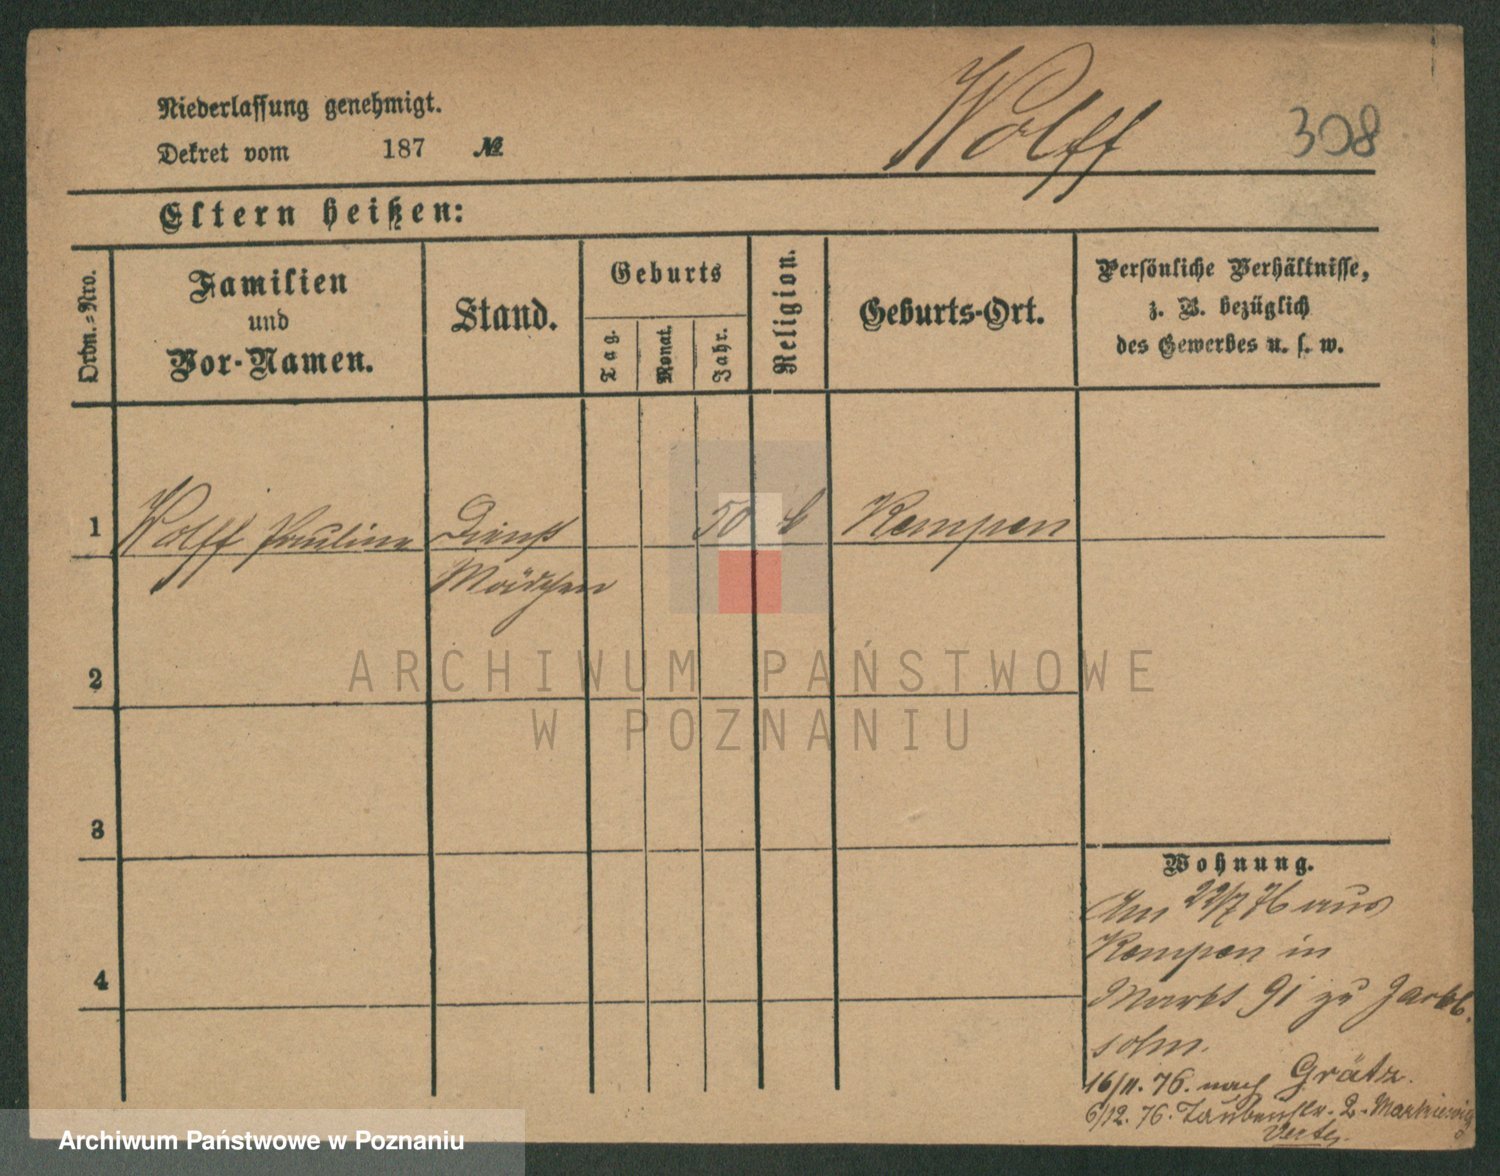 Niederlassung genehmigt.
Wolff
308
Dekret vom 187 №
Eltern heißen:
Ordn.-Nro.
Familien
und
Vor-Namen.
Stand.
Geburts
Tag.
Monat.
Jahr.
Religion.
Geburts-Ort.
Persönliche Verhältnisse,
z. B. bezüglich
des Gewerbes u. s. w.
1 Wolff Pauline Dienst 50 Kempen
Mädchen
ARCHIWUM PAŃSTWOWE
W POZNANIU
2
3
4
Wohnung.
Am 22/7 76 aus
Kempen in
Markt 91 zu
sohn.
16/11. 76. nach Grätz.
6/12. 76. Taubenstr. 2.
Archiwum Państwowe w Poznaniu